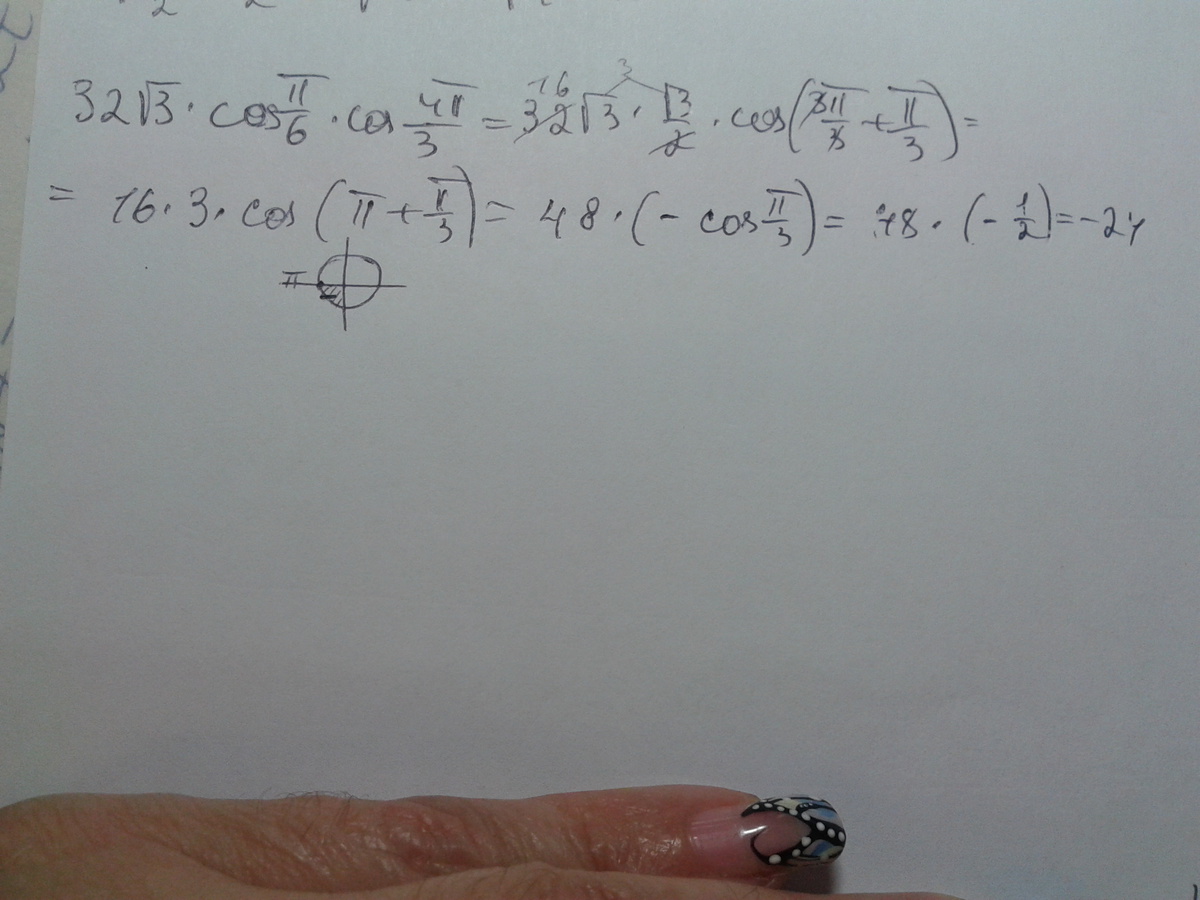 32√3 · cos π/6 · cos 4π/3 = 32√3 · √3/2 · cos(3π/3 + π/3) =
= 16 · 3 · cos(π + π/3) = 48 · (- cos π/3) = 48 · (- 1/2) = -24
π